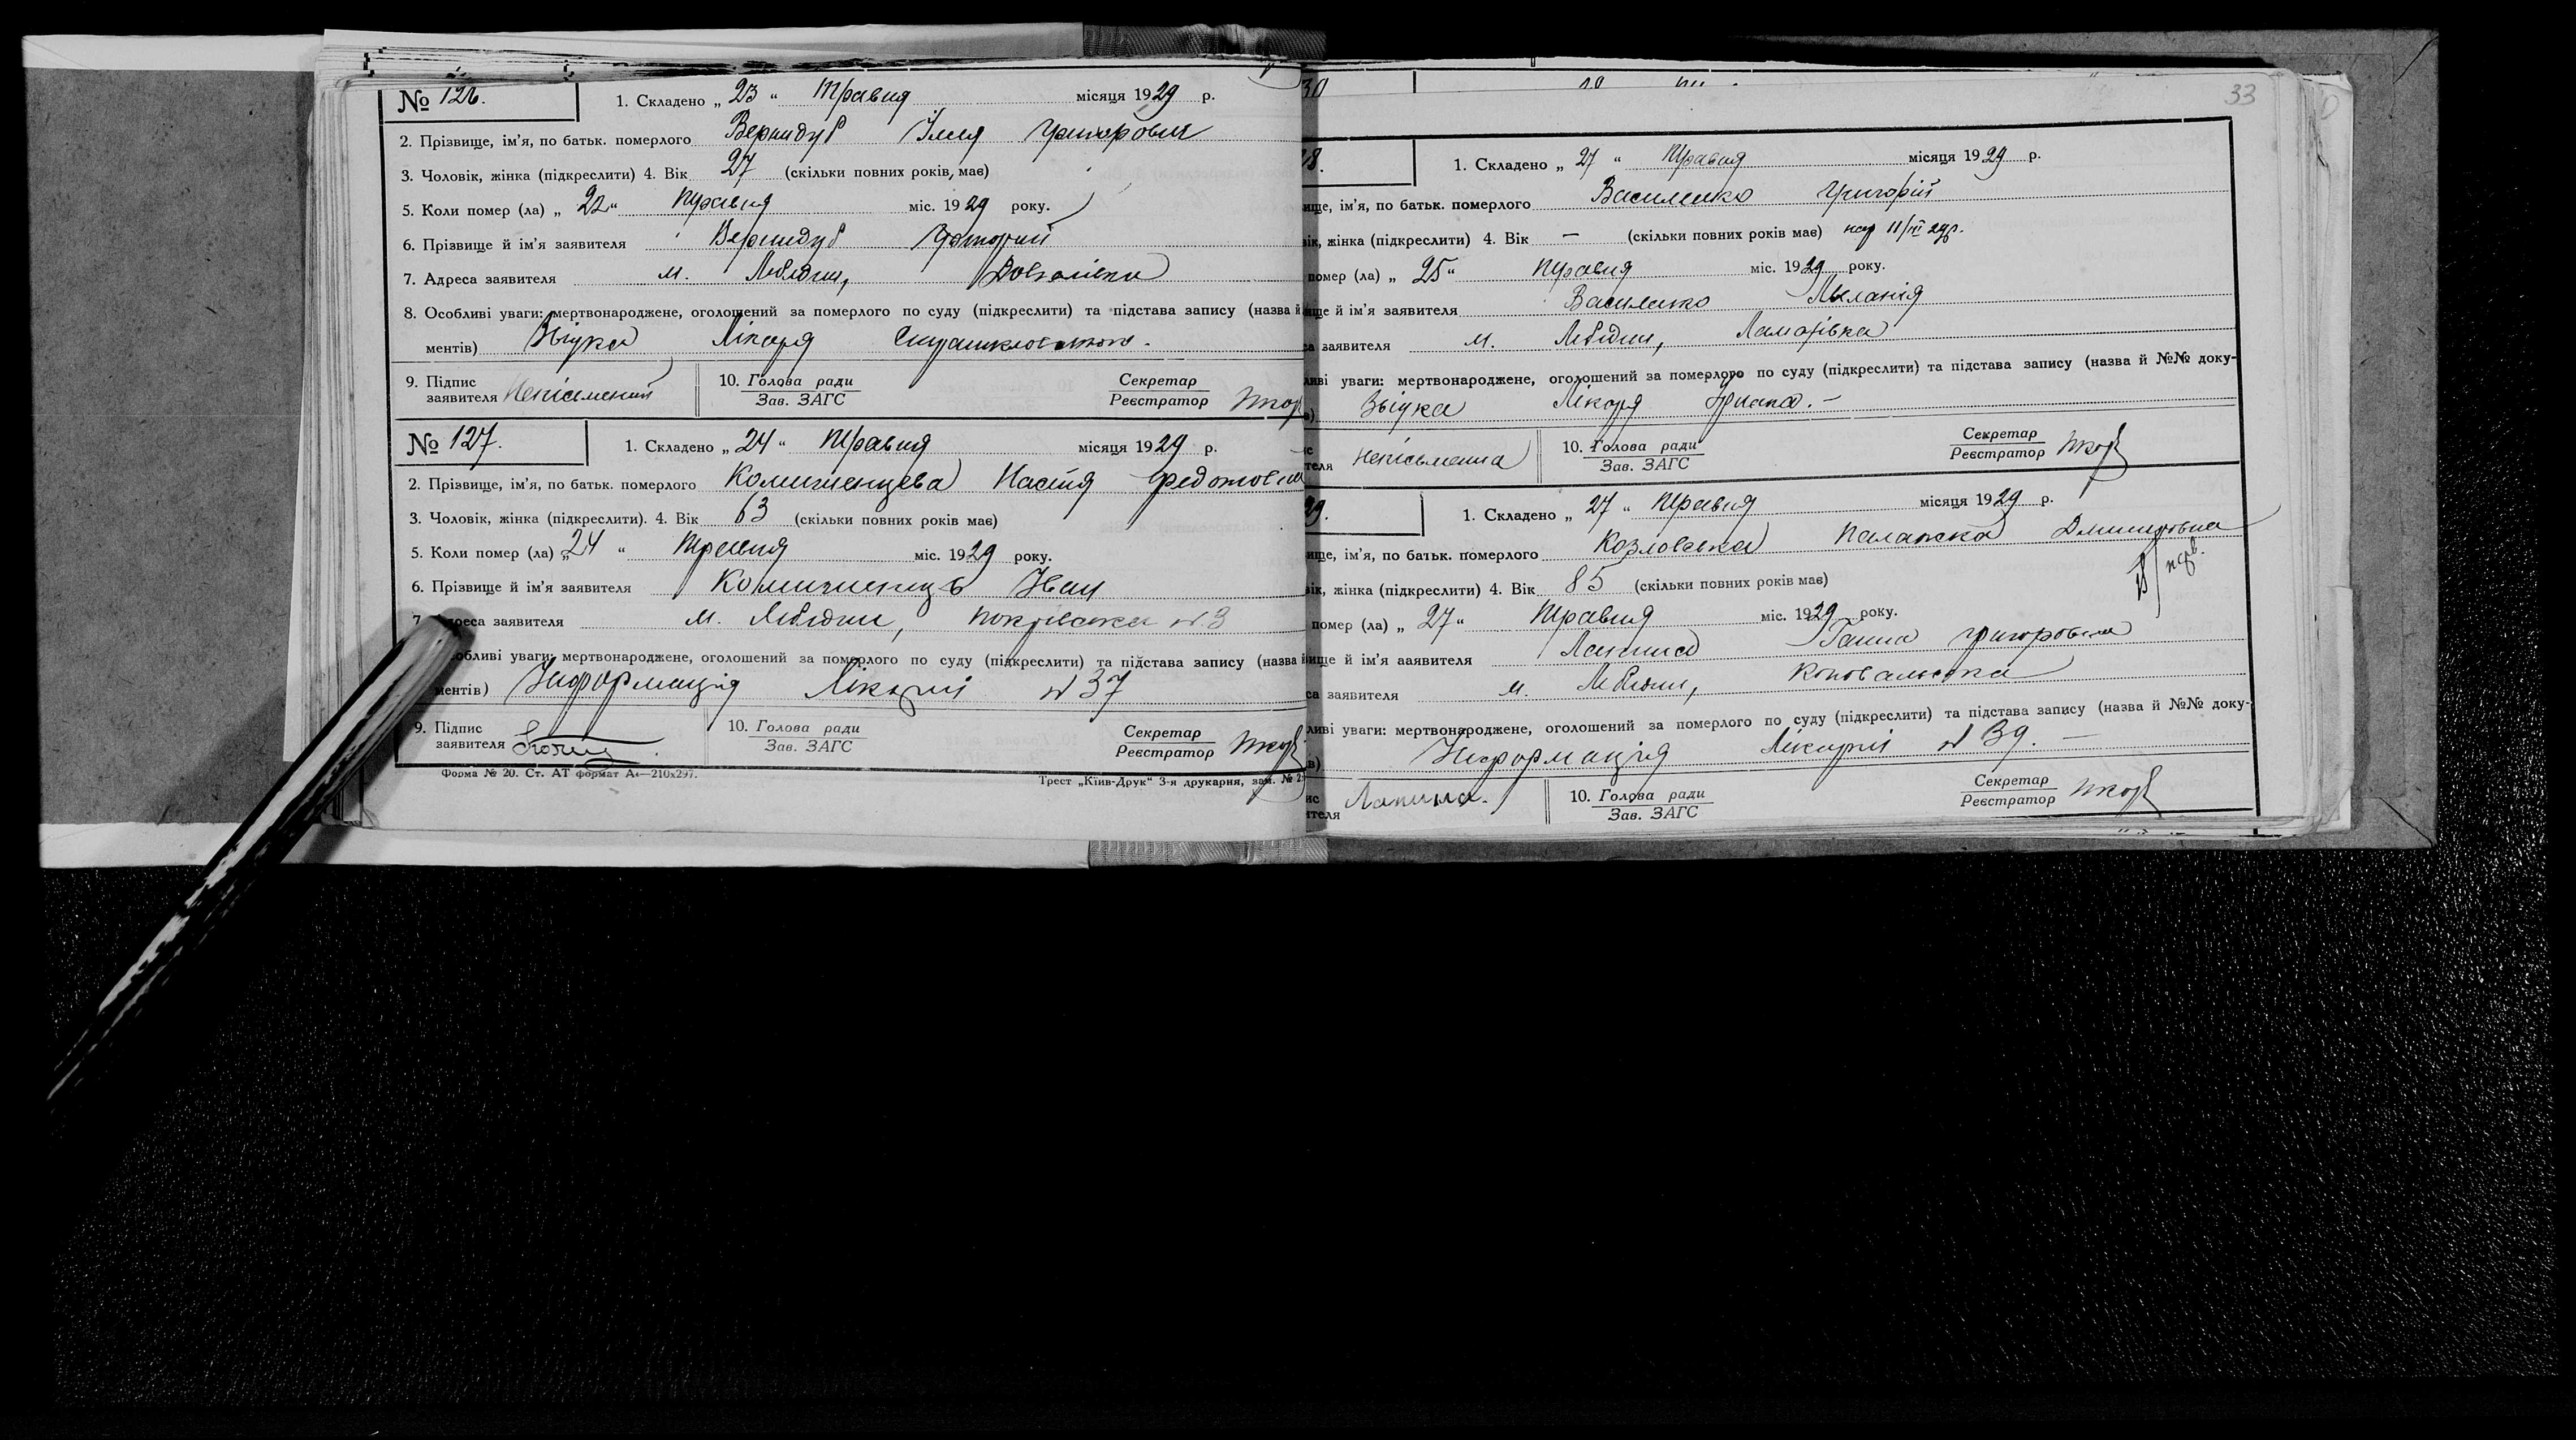 № 126. 1. Складено „ 23 “ Травня місяця 1929 р.
2. Прізвище, ім'я, по батьк. померлого Вернидуб Ілля Григорович
3. Чоловік, жінка (підкреслити) 4. Вік 27 (скільки повних років, має)
5. Коли помер (ла) „ 22 “ Травня міс. 1929 року.
6. Прізвище й ім'я заявителя Вернидуб Григорий
7. Адреса заявителя м. Лебедин,
8. Особливі уваги: мертвонароджене, оголошений за померлого по суду (підкреслити) та підстава запису (назва й
ментів) Лікаря
9. Підпис заявителя Неписьменний 10. Голова ради Зав. ЗАГС Секретар Реєстратор
№ 127. 1. Складено „ 24 “ Травня місяця 1929 р.
2. Прізвище, ім'я, по батьк. померлого Комишенцева Настя
3. Чоловік, жінка (підкреслити). 4. Вік 63 (скільки повних років має)
5. Коли помер (ла) „ 24 “ Травня міс. 1929 року.
6. Прізвище й ім'я заявителя Комишенцев Іван
7. реса заявителя м. Лебедин, Покровська № 3
обливі уваги: мертвонароджене, оголошений за померлого по суду (підкреслити) та підстава запису (назва й
ментів) Інформація Лікарні № 37
9. Підпис заявителя 10. Голова ради Зав. ЗАГС Секретар Реєстратор
Форма № 20. Ст. АТ формат А4—210х297. Трест „Київ-Друк“ 3-я друкарня, зам. № 2
30
33
28. 1. Складено „ 27 “ Травня місяця 1929 р.
ище, ім'я, по батьк. померлого Василенко Григорій
вік, жінка (підкреслити) 4. Вік — (скільки повних років має) нар 11/III 29р.
помер (ла) „ 25 “ Травня міс. 1929 року.
ище й ім'я заявителя Василенко Мелания
са заявителя м. Лебедин,
ливі уваги: мертвонароджене, оголошений за померлого по суду (підкреслити) та підстава запису (назва й №№ доку-
в) Лікаря
ис ителя Неписьменна 10. Голова ради Зав. ЗАГС Секретар Реєстратор
29. 1. Складено „ 27 “ Травня місяця 1929 р.
ище, ім'я, по батьк. померлого Козловська Палажка Дмитровна
вік, жінка (підкреслити) 4. Вік 85 (скільки повних років має)
помер (ла) „ 27 “ Травня міс. 1929 року.
ище й ім'я аявителя Лапина Ганна Григоровна
са заявителя м. Лебедин, Коновальська
ливі уваги: мертвонароджене, оголошений за померлого по суду (підкреслити) та підстава запису (назва й №№ доку-
в) Інформація Лікарні № 39. —
ис ителя Лапина. 10. Голова ради Зав. ЗАГС Секретар Реєстратор